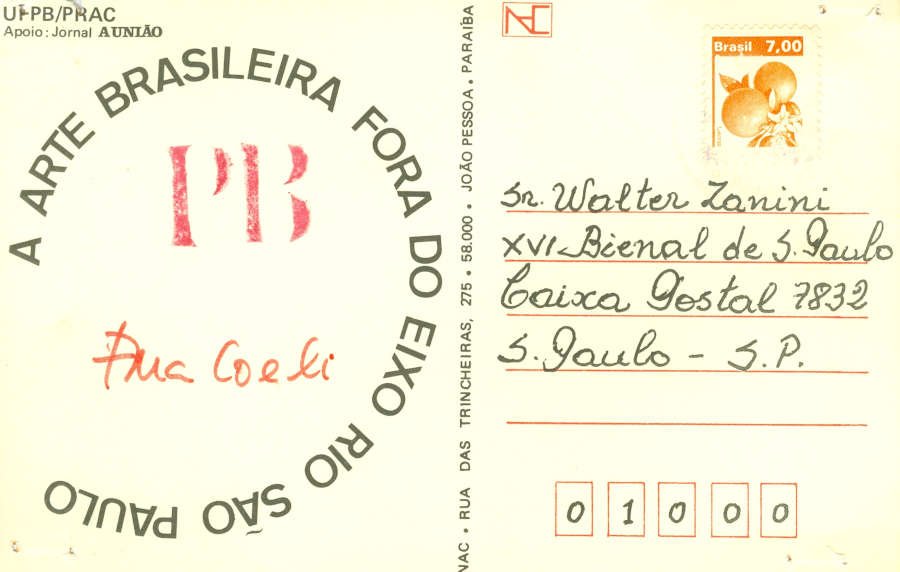 UFPB/PRAC
Apoio: Jornal A UNIÃO
A ARTE BRASILEIRA FORA DO EIXO RIO SÃO PAULO
PB
Ana Coeli
NAC • RUA DAS TRINCHEIRAS, 275 • 58.000 • JOÃO PESSOA • PARAÍBA
NAC
Brasil 7,00
Sr. Walter Zanini
XVI Bienal de S. Paulo
Caixa Postal 7832
S. Paulo - S.P.
01000